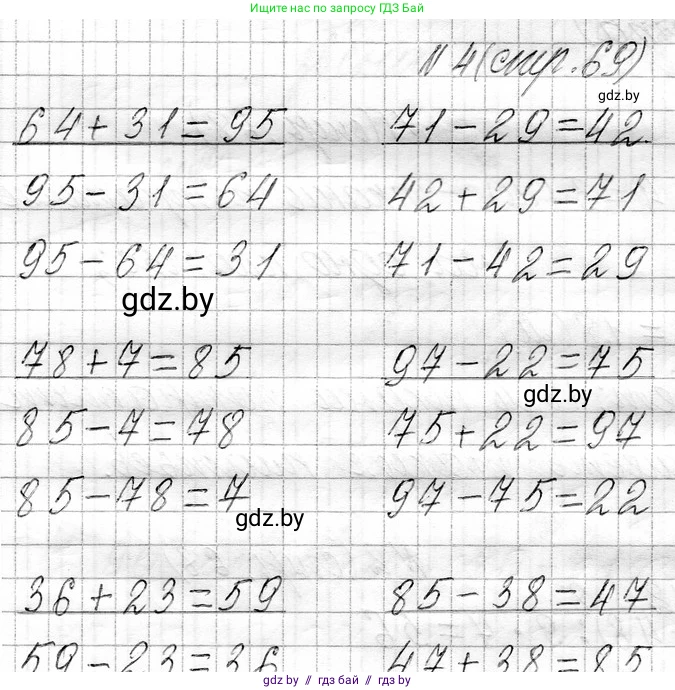 Ищите нас по запросу ГДЗ Бай
N 4 (стр. 69)
gdz.by
64+31=95 71-29=42.
95-31=64 42+29=71
95-64=31 71-42=29
gdz.by
78+7=85 97-22=75
gdz.by
85-7=78 75+22=97
85-78=7 97-75=22
gdz.by
36+23=59 85-38=47
59-23=36 47+38=85
gdz.by // гдз бай // gdz.by